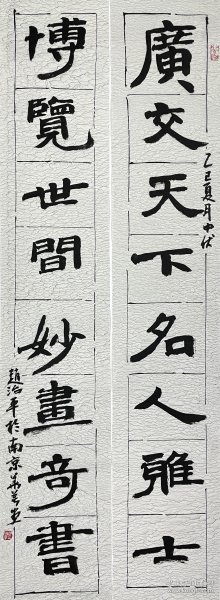 廣交天下名人雅士
乙巳夏月中伏
博覽世間妙畫奇書
趙治平於南京